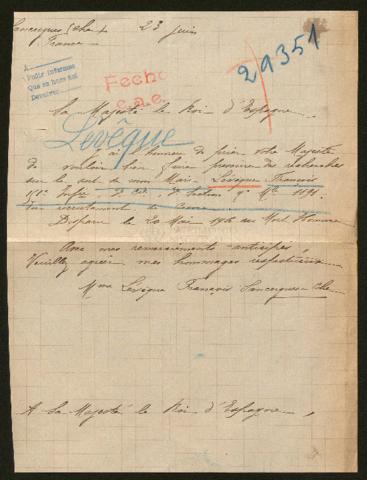 Sancergues Cher 23 juin
France
29351
A
Petit informe
Que se hara asi
Fecho
c.a.e.
Sa Majesté le Roi d'Espagne
Levêque
J'ai l'honneur de prier votre Majesté
de vouloir bien faire prendre des recherches
sur le sort de mon Mari Levêque François
Infie
du recrutement de
Disparu le 20 Mai 1916 au Mort Homme
Avec mes remerciements anticipés
Veuillez agréer mes hommages respectueux
Mme Levêque François Sancergues Cher
A Sa Majesté le Roi d'Espagne